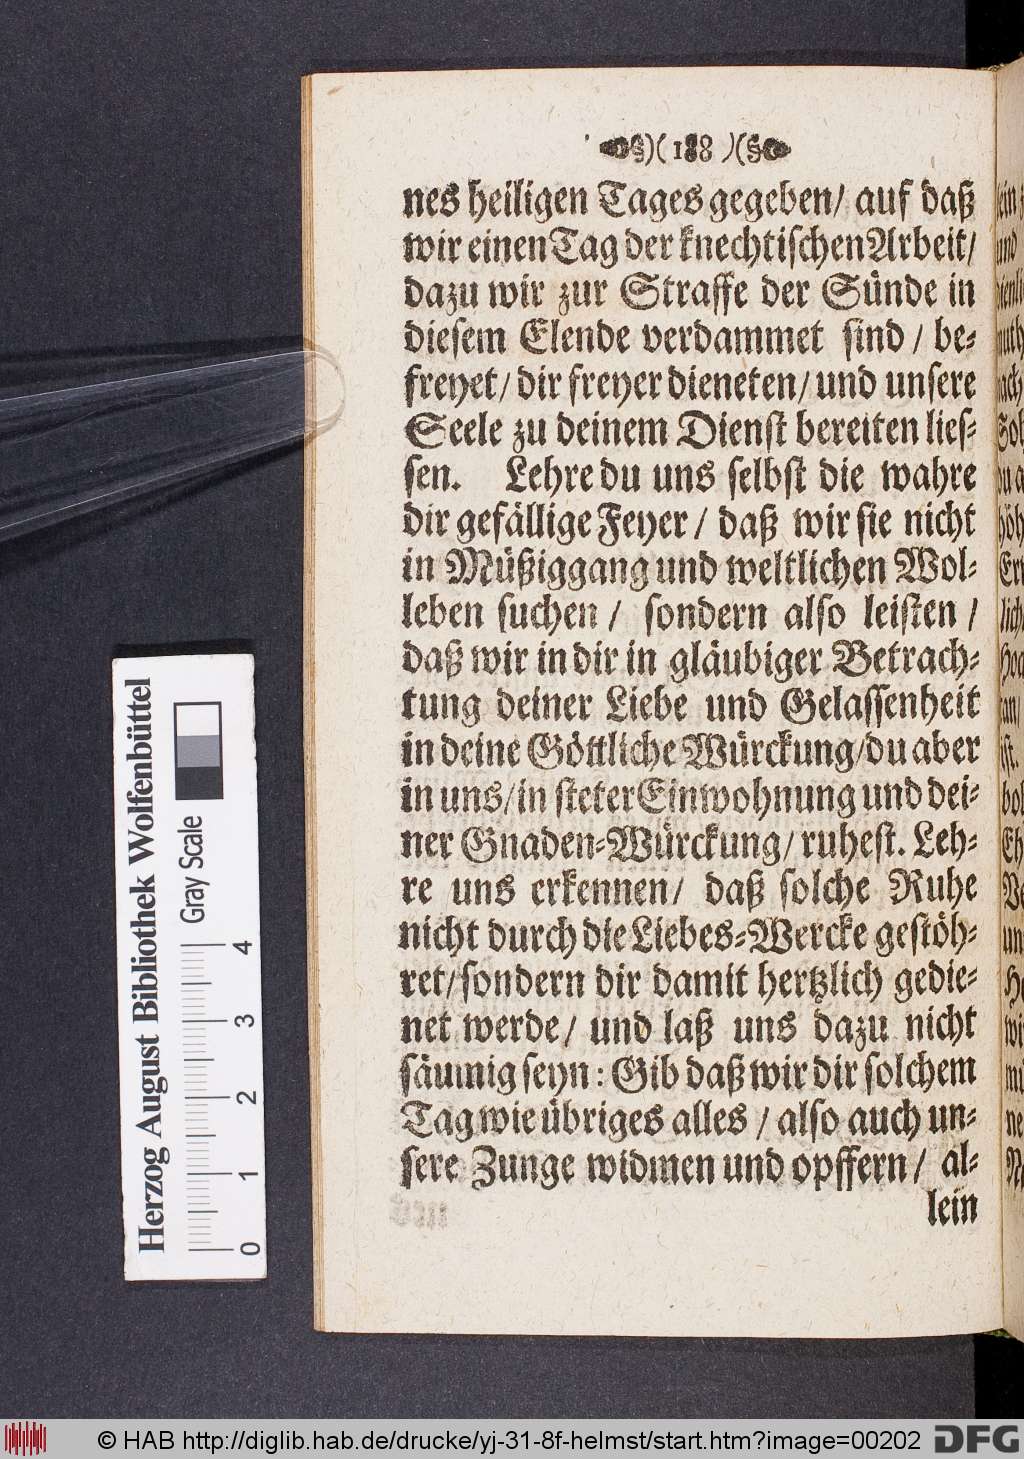 §)( 188 )(§
nes heiligen Tages gegeben/ auf daß
wir einen Tag der knechtischen Arbeit/
dazu wir zur Straffe der Sünde in
diesem Elende verdammet sind / be-
freyet/ dir freyer dieneten/ und unsere
Seele zu deinem Dienst bereiten lies-
sen. Lehre du uns selbst die wahre
dir gefällige Feyer / daß wir sie nicht
in Müßiggang und weltlichen Wol-
leben suchen / sondern also leisten /
daß wir in dir in gläubiger Betrach-
tung deiner Liebe und Gelassenheit
in deine Göttliche Würckung/du aber
in uns/in steter Einwohnung und dei-
ner Gnaden-Würckung/ ruhest. Leh-
re uns erkennen/ daß solche Ruhe
nicht durch die Liebes-Wercke gestöh-
ret/sondern dir damit hertzlich gedie-
net werde/ und laß uns dazu nicht
säumig seyn: Gib daß wir dir solchem
Tag wie übriges alles / also auch un-
sere Zunge widmen und opffern / al-
lein
Herzog August Bibliothek Wolfenbüttel
Gray Scale
0 1 2 3 4
© HAB http://diglib.hab.de/drucke/yj-31-8f-helmst/start.htm?image=00202
DFG